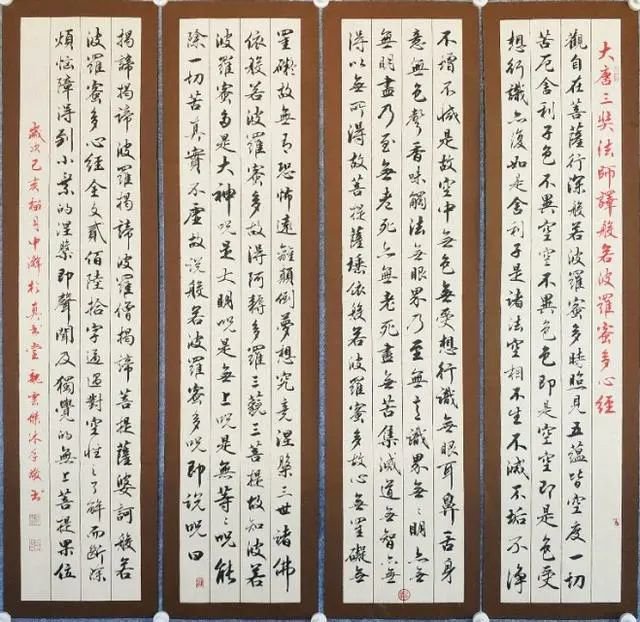 大唐三奘法師譯般若波羅蜜多心經
觀自在菩薩行深般若波羅蜜多時照見五蘊皆空度一切
苦厄舍利子色不異空空不異色色即是空空即是色受
想行識亦復如是舍利子是諸法空相不生不滅不垢不淨
不增不減是故空中無色無受想行識無眼耳鼻舌身
意無色聲香味觸法無眼界乃至無意識界無々明亦無
無明盡乃至無老死亦無老死盡無苦集滅道無智亦無
得以無所得故菩提薩埵依般若波羅蜜多故心無罣礙無
罣礙故無有恐怖遠離顛倒夢想究竟涅槃三世諸佛
依般若波羅蜜多故得阿耨多羅三藐三菩提故知波若
波羅蜜多是大神咒是大明咒是無上咒是無等々咒能
除一切苦真實不虛故說般若波羅蜜多咒即說咒曰
揭諦揭諦波羅揭諦波羅僧揭諦菩提薩婆訶般若
波羅蜜多心經全文貳佰陸拾字通過對空性之了解而斷除
煩惱障得到小乘的涅槃即聲聞及獨覺的無上菩提果位
歲次己亥梅月中澣於真書堂魏雲傑沐手敬書